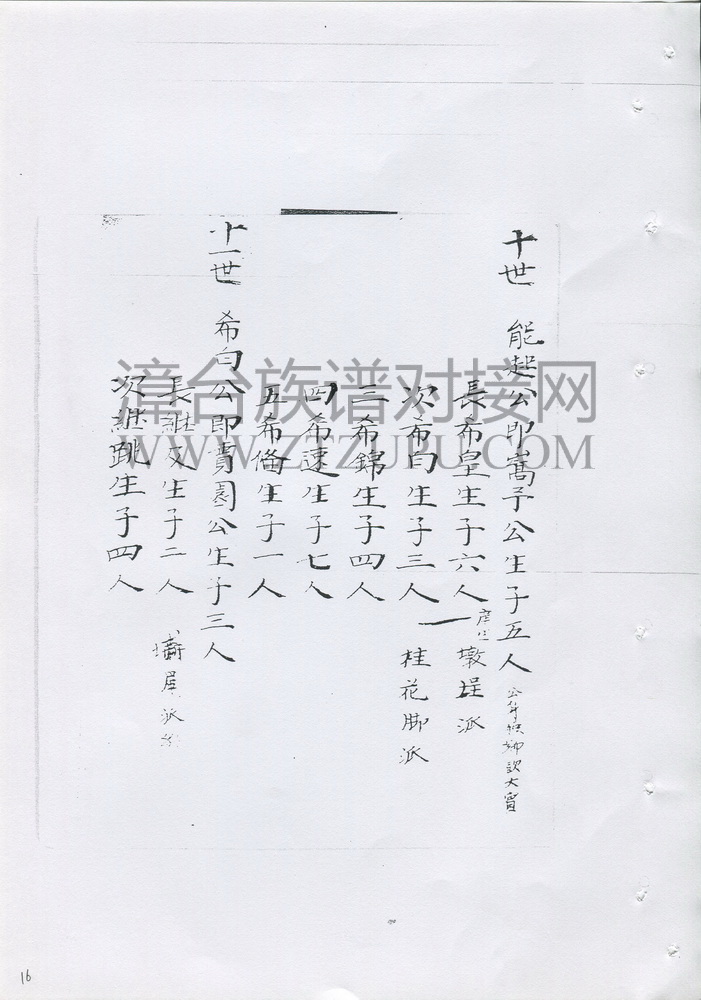 十世 能起公即嵩子公生子五人
長希皇生子六人 墩埕派
次希白生子三人 桂花脚派
三希錦生子四人
四希速生子七人
五希脩生子一人
十一世 希白公即賁園公生子三人
長継文生子二人 屋派
次継跳生子四人
漳台族谱对接网
WWW.ZTZUPU.COM
16